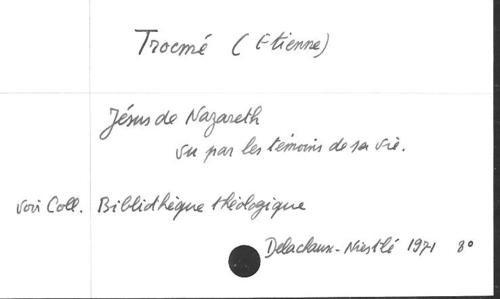 Trocmé (Etienne)
Jésus de Nazareth
vu par les témoins de sa vie.
voir Coll. Bibliothèque théologique
Delachaux-Niestlé 1971 8°